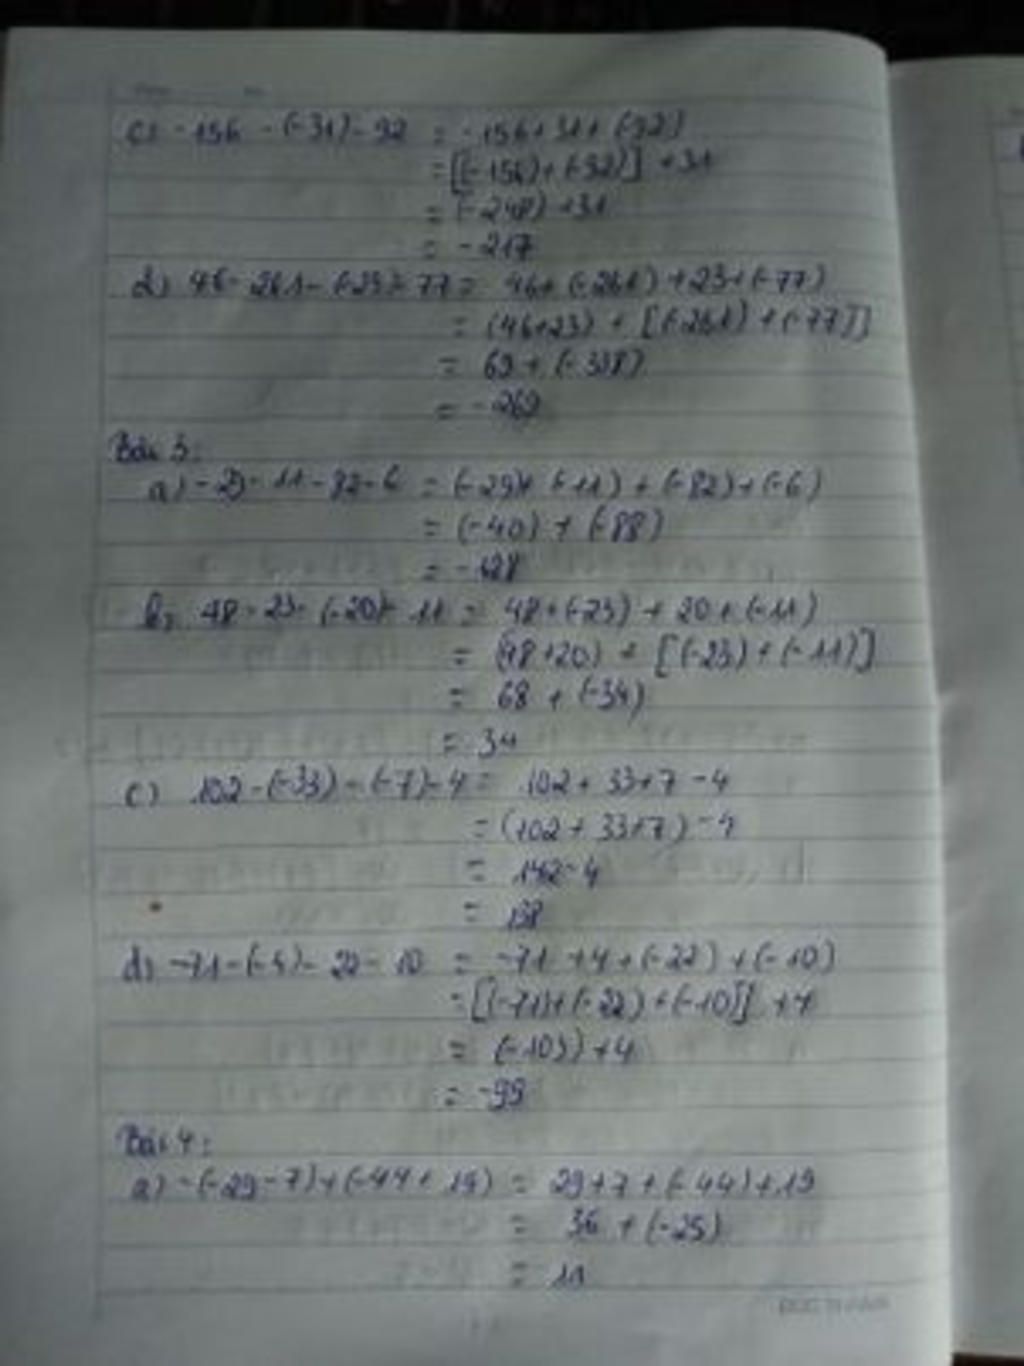 c) -156 - (-31) - 92 = -156 + 31 + (-92)
= [(-156) + (-92)] + 31
= (-248) + 31
= -217
d) 46 - 261 - (-23) - 77 = 46 + (-261) + 23 + (-77)
= (46+23) + [(-261) + (-77)]
= 69 + (-338)
= -269
Bài 3:
a) -29 - 11 - 82 - 6 = (-29) + (-11) + (-82) + (-6)
= (-40) + (-88)
= -128
b) 48 - 23 - (-20) - 11 = 48 + (-23) + 20 + (-11)
= (48+20) + [(-23) + (-11)]
= 68 + (-34)
= 34
c) 102 - (-33) - (-7) - 4 = 102 + 33 + 7 - 4
= (102 + 33+7) - 4
= 142 - 4
= 138
d) -71 - (-4) - 22 - 10 = -71 + 4 + (-22) + (-10)
= [(-71) + (-22) + (-10)] + 4
= (-103) + 4
= -99
Bài 4:
a) -(-29 - 7) + (-44 + 19) = 29 + 7 + (-44) + 19
= 36 + (-25)
= 11